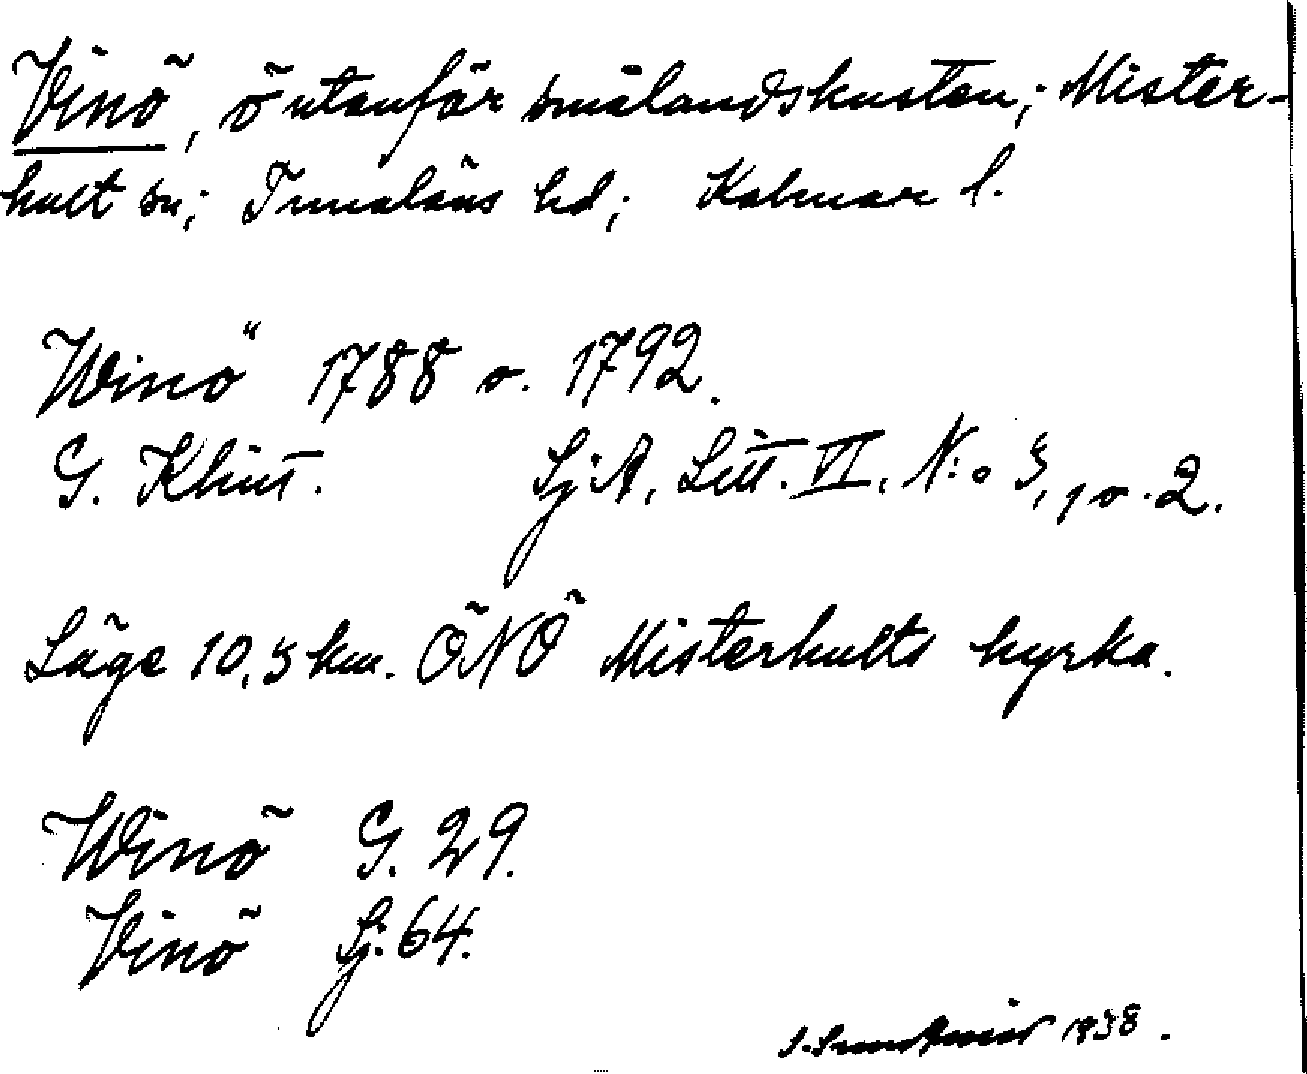 Vinö, ö utanför smålandskusten; Mister-
hult sn; Tunaläns hd; Kalmar l.
Winö 1788 o. 1792.
G. Klint. Sj.A. Litt. VI. N:o 3, 1 o. 2.
Läge 10,5 km. ÖNÖ Misterhults kyrka.
Winö G. 29.
Vinö Sj. 64.
1938.